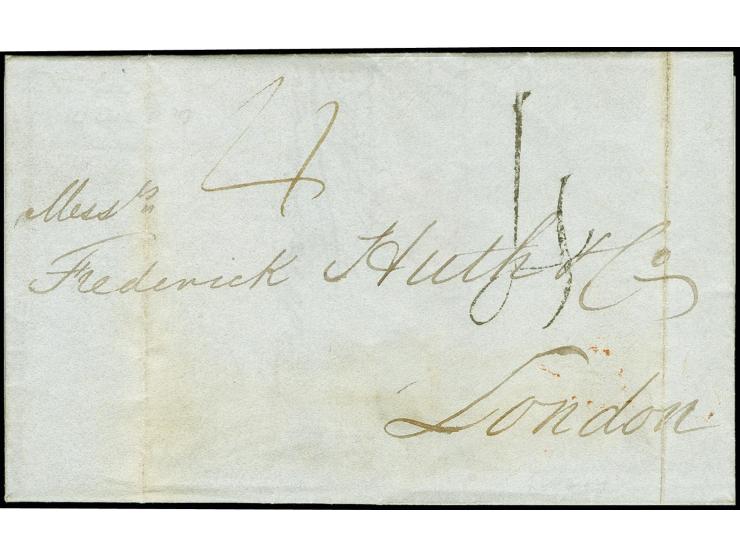 4
Mess.rs
Frederick Huth & Co
London